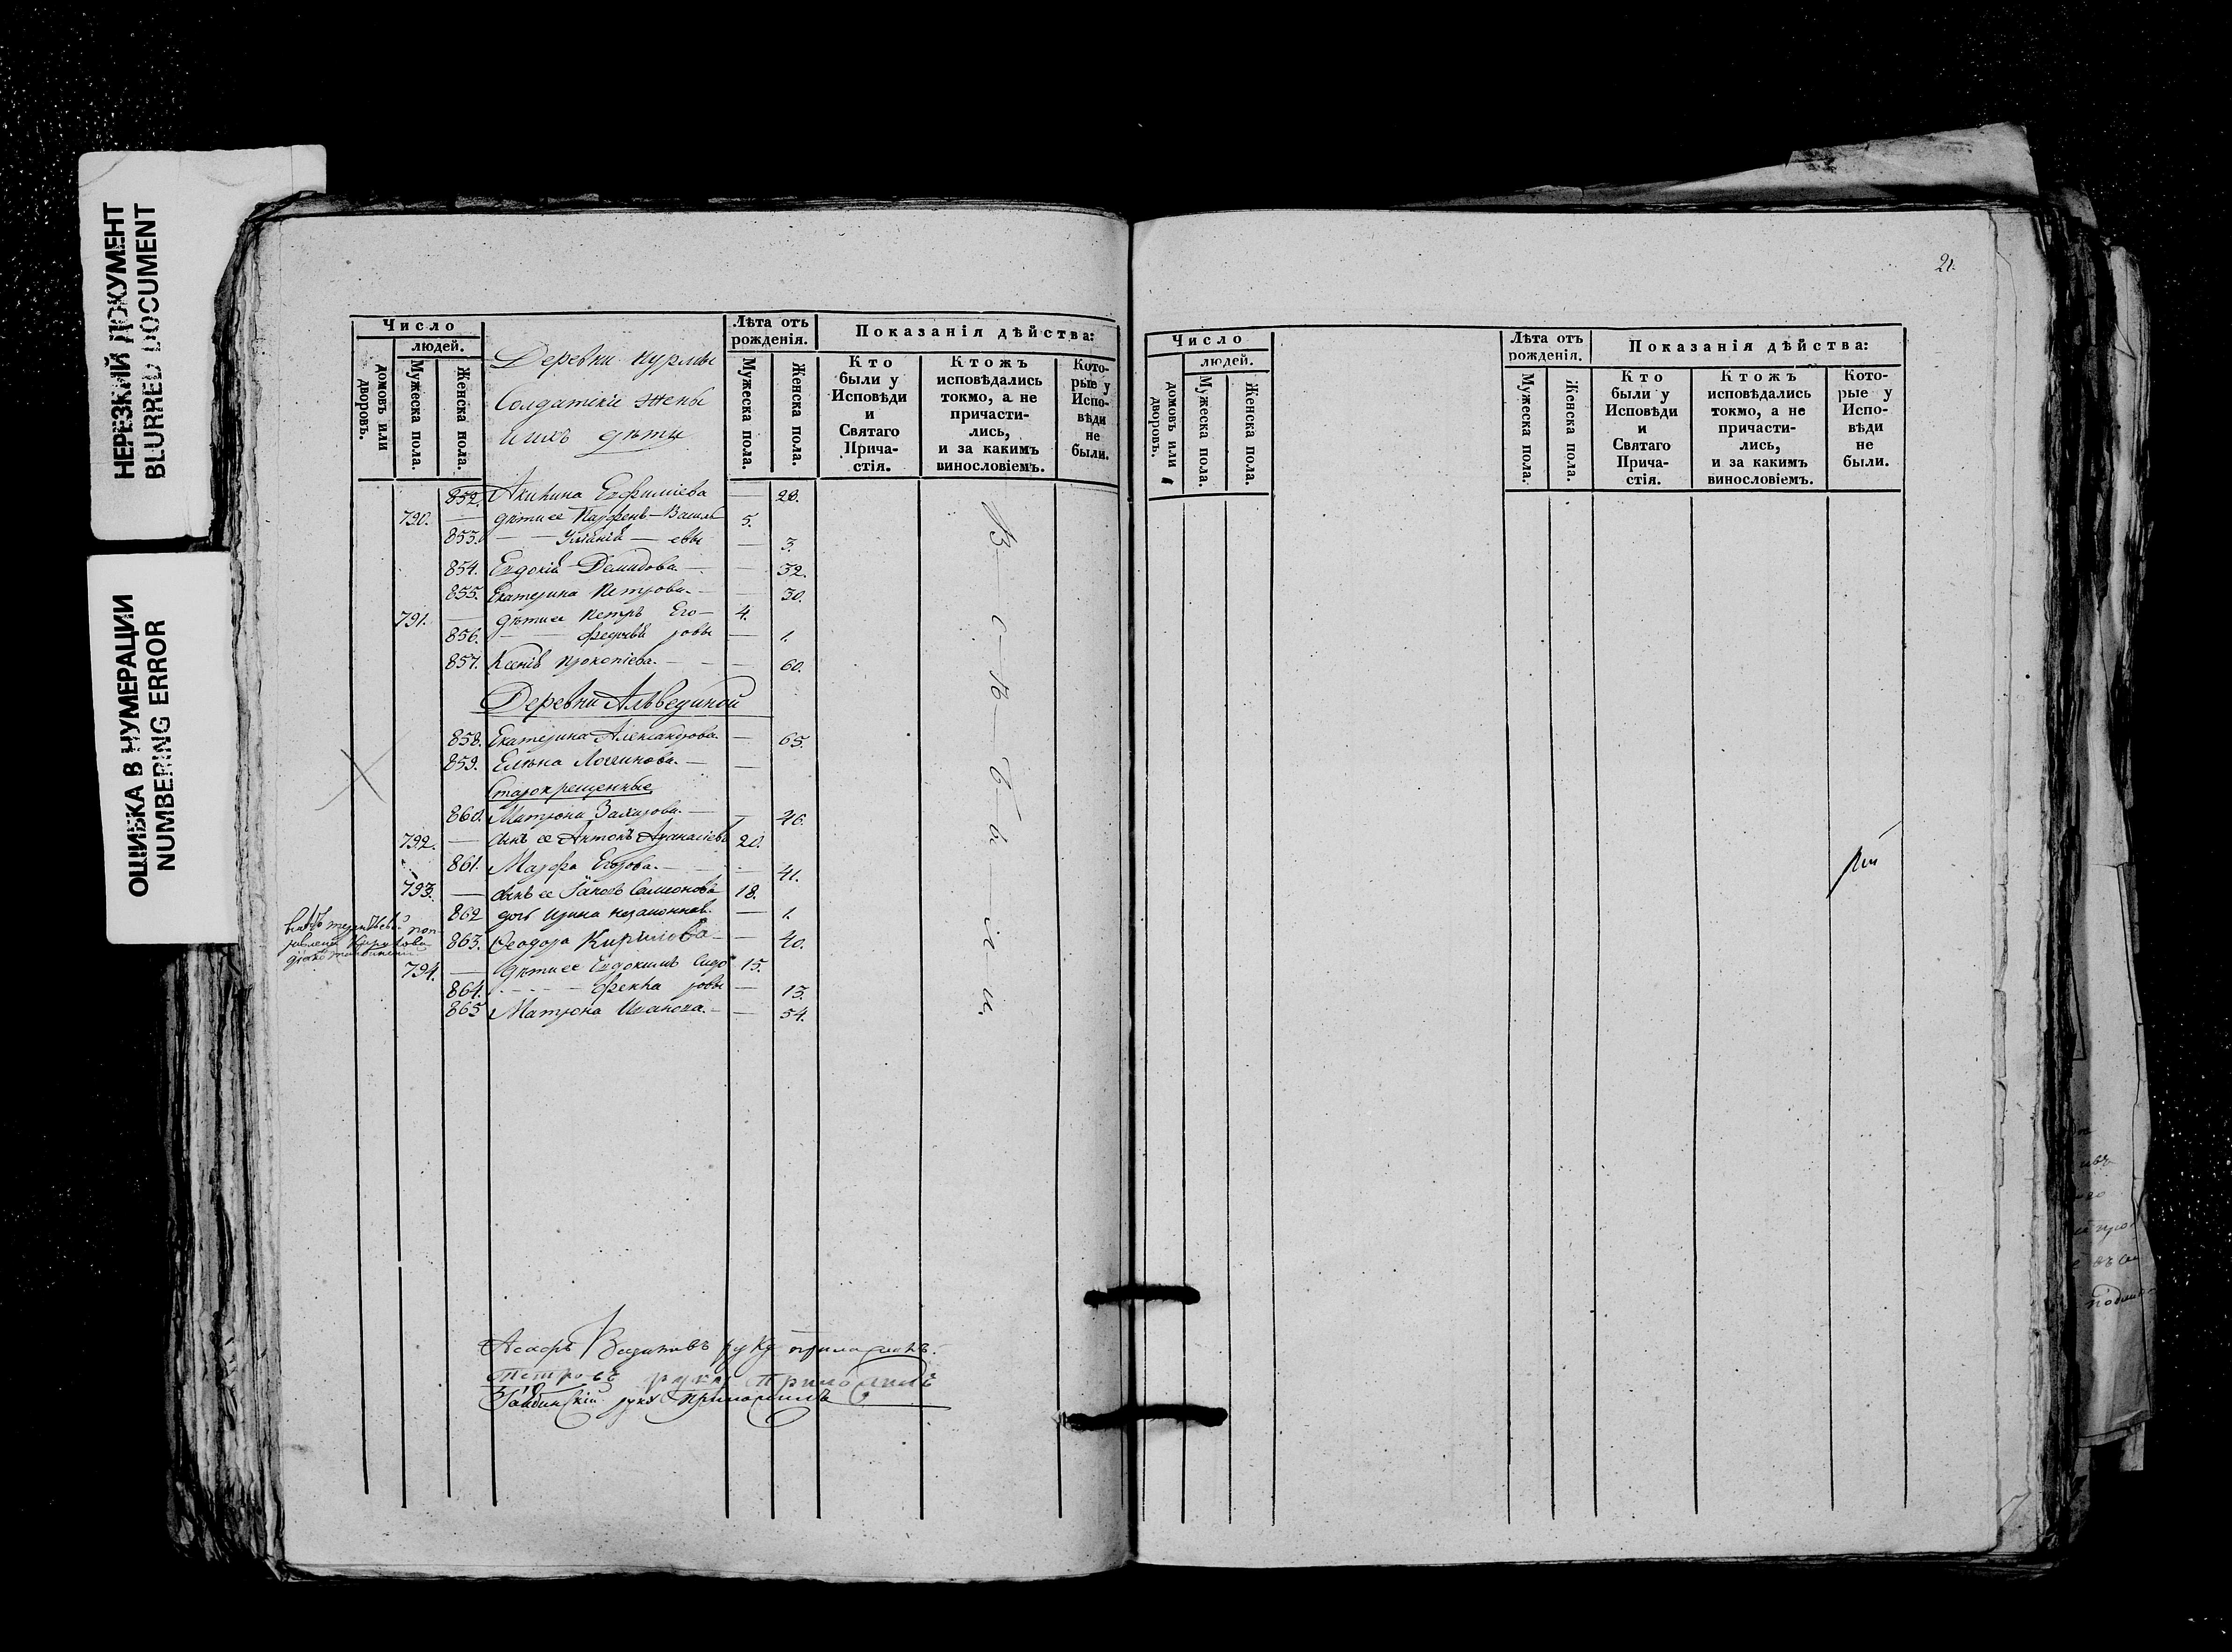 НЕРЕЗКИЙ ДОКУМЕНТ
BLURRED DOCUMENT
ОШИБКА В НУМЕРАЦИИ
NUMBERING ERROR
Число
людей.
домовъ или дворовъ.
Мужеска пола.
Женска пола.
Деревни Курмы
Солдатскіе жены
и ихъ дѣти
Лѣта отъ рожденія.
Мужеска пола.
Женска пола.
Показанія дѣйства:
Кто были у Исповѣди и Святаго Прича-стія.
Ктожъ исповѣдались токмо, а не причасти-лись, и за какимъ винословіемъ.
Кото-рые у Испо-вѣди не были.
852. Акилина Евфиміева — 28.
790. — дѣти ее Парфенъ — Василь 5.
853. — — — евы — 3.
854. Евдокія Демидова — — 32.
855. Екатерина Петрова — — 30.
791. — дѣти ее Петръ Его- 4.
856. — ровы — 1.
857. Ксенія Прокопіева — — 60.
Деревни
858. Екатерина Александрова — 65.
859. Елена Логинова — —
Старокрещенные
860. Матрона Захарова — — 46.
792. — сынъ ее Антонъ Афанасіевъ 20.
861. Марфа Егорова — — 41.
793. — сынъ ее Іаковъ Самсоновъ 18.
862 дочь Ирина незаконнов. — 1.
863. Феодора Кирилова — — 40.
794. — дѣти ее Евдокимъ Сидо- 15.
864. — ровы — 13.
865 Матрона Иванова — — 54.
В с ѣ б ы л и.
руку приложилъ.
Петровъ руку приложилъ
руку приложилъ
21.
Число
людей.
домовъ или дворовъ.
Мужеска пола.
Женска пола.
Лѣта отъ рожденія.
Мужеска пола.
Женска пола.
Показанія дѣйства:
Кто были у Исповѣди и Святаго Прича-стія.
Ктожъ исповѣдались токмо, а не причасти-лись, и за какимъ винословіемъ.
Кото-рые у Испо-вѣди не были.